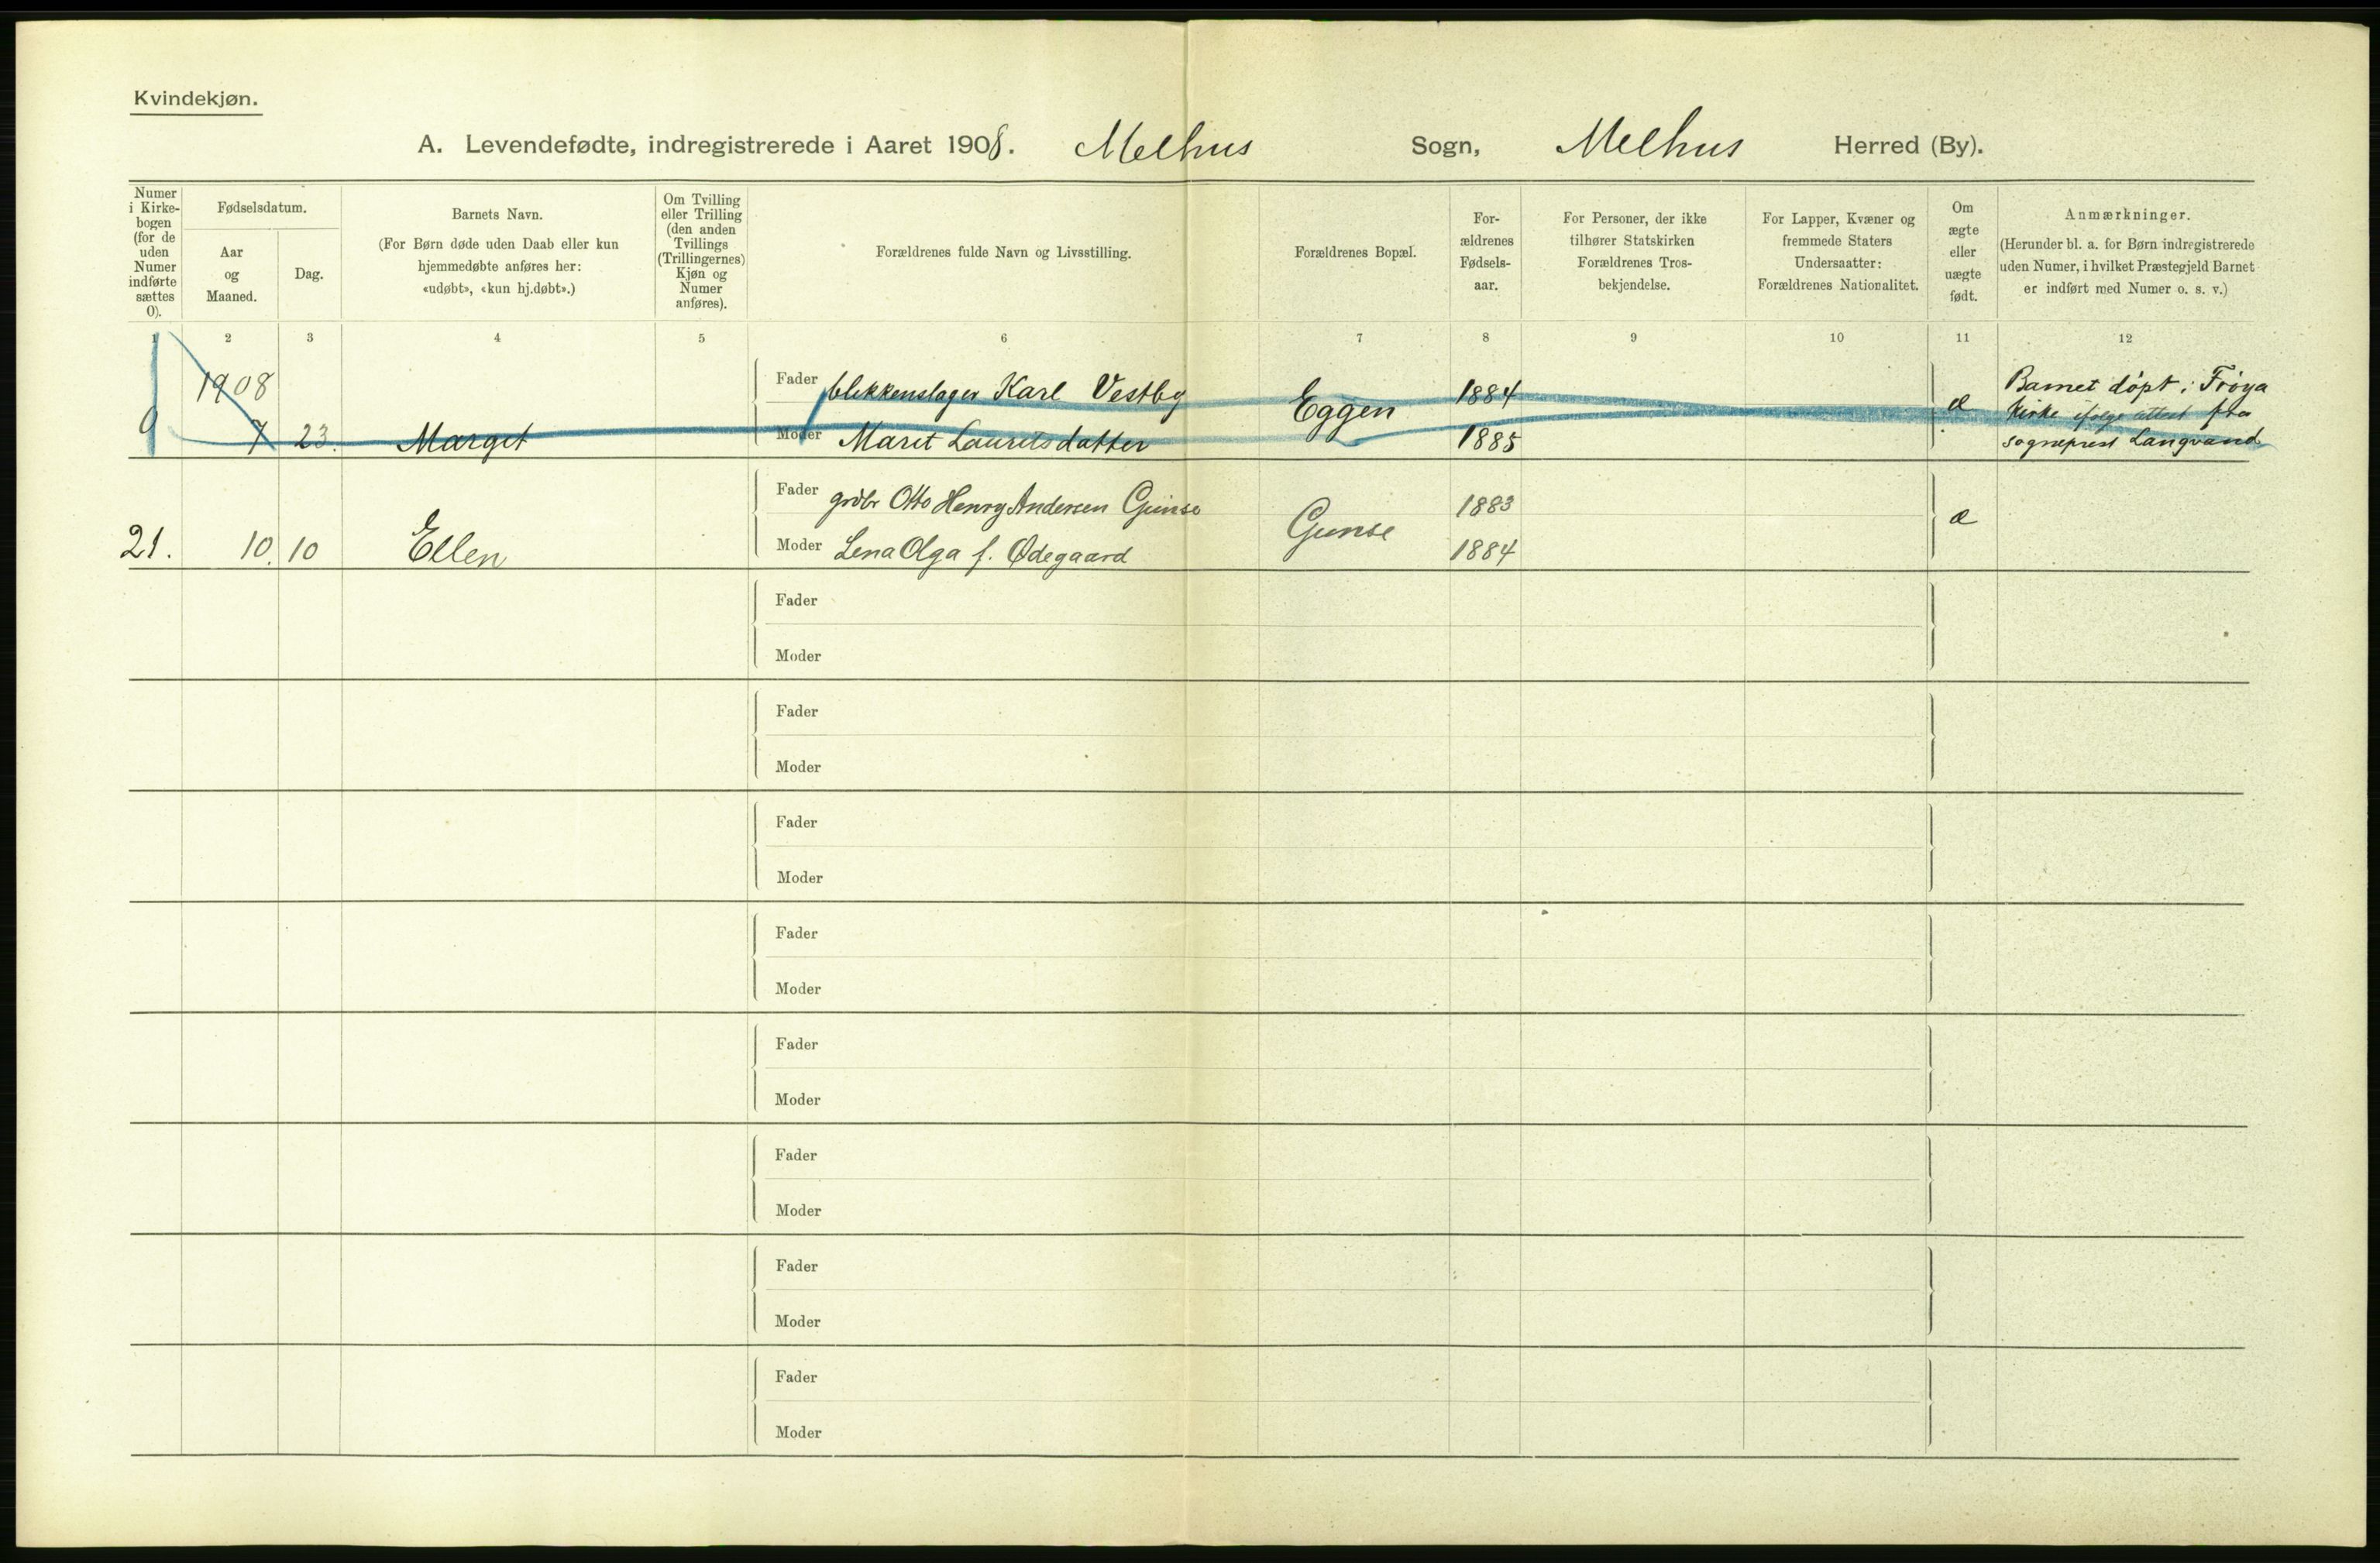 Kvindekjøn.
A. Levendefødte, indregistrerede i Aaret 1908. Melhus Sogn, Melhus Herred (By).
Numer i Kirke-bogen (for de uden Numer indførte sættes 0).
Fødselsdatum.
Aar og Maaned.
Dag.
Barnets Navn.
(For Børn døde uden Daab eller kun
hjemmedøbte anføres her:
«udøbt», «kun hj.døbt».)
Om Tvilling
eller Trilling
(den anden
Tvillings
(Trillingernes)
Kjøn og
Numer
anføres).
Forældrenes fulde Navn og Livsstilling.
Forældrenes Bopæl.
For-
ældrenes
Fødsels-
aar.
For Personer, der ikke
tilhører Statskirken
Forældrenes Tros-
bekjendelse.
For Lapper, Kvæner og
fremmede Staters
Undersaatter:
Forældrenes Nationalitet.
Om
ægte
eller
uægte
født.
Anmærkninger.
(Herunder bl. a. for Børn indregistrerede
uden Numer, i hvilket Præstegjeld Barnet
er indført med Numer o. s. v.)
1 2 3 4 5 6 7 8 9 10 11 12
1908
Fader blekkenslager Karl Vestby Eggen 1884 æ Barnet döpt i Fröya
Kirke ifølge attest fra
0 7 23. Margit Moder Marit Lauritsdatter 1885 sogneprest Langvand
Fader grdbr Otto Henry Andersen Gunse Gunse 1883 æ
21. 10. 10 Ellen Moder Lena Olga f. Ødegaard 1884
Fader
Moder
Fader
Moder
Fader
Moder
Fader
Moder
Fader
Moder
Fader
Moder
Fader
Moder
Fader
Moder